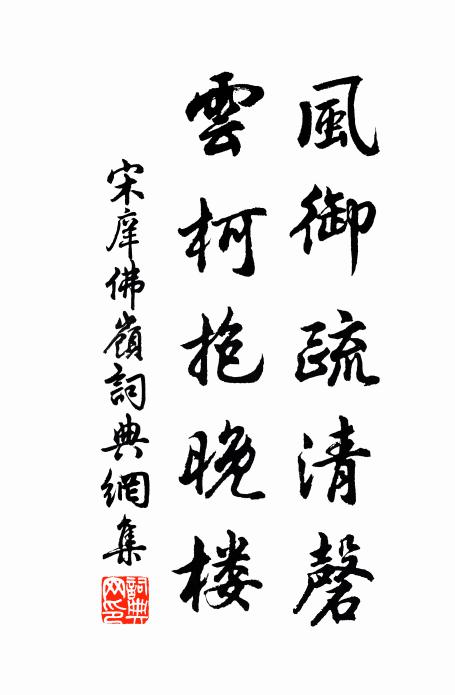 風御疏清磬
雲柯抱晚楼
宋庠佛嶺詞典網集
詞典网印